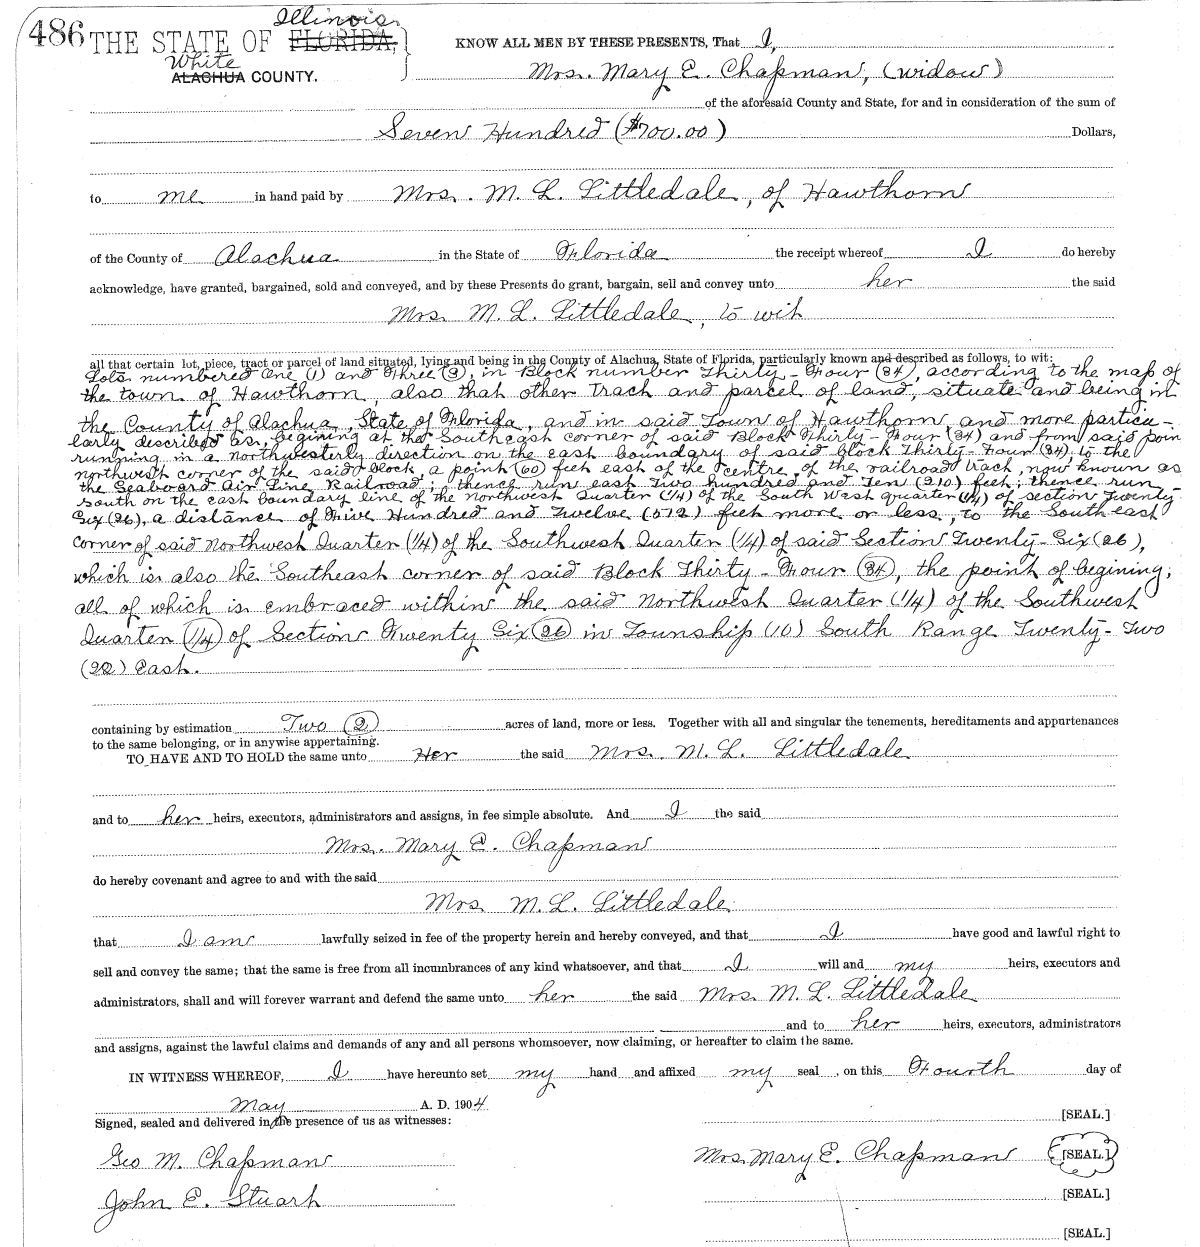 Illinois
486 THE STATE OF FLORIDA,
KNOW ALL MEN BY THESE PRESENTS, That I,
White
ALACHUA COUNTY.
Mrs. Mary E. Chapman, (widow)
of the aforesaid County and State, for and in consideration of the sum of
Seven Hundred ($700.00) Dollars,
to me in hand paid by Mrs. M. L. Littledale, of Hawthorn
of the County of Alachua in the State of Florida the receipt whereof I do hereby
acknowledge, have granted, bargained, sold and conveyed, and by these Presents do grant, bargain, sell and convey unto her the said
Mrs. M. L. Littledale, to wit
all that certain lot, piece, tract or parcel of land situated, lying and being in the County of Alachua, State of Florida, particularly known and described as follows, to wit:
Lots numbered One (1) and Three (3), in Block number Thirty-Four (34), according to the map of
the town of Hawthorn, also that other track and parcel of land, situate and being in
the County of Alachua, State of Florida, and in said Town of Hawthorn, and more particu-
larly described as, begining at the Southeast corner of said Block Thirty-Four (34) and from said poin
running in a northwesterly direction on the east boundary of said block Thirty-Four (34), to the
northwest corner of the said block, a point (60) feet east of the centre of the railroad track, now known as
the Seaboard Air Line Railroad; thence run east Two hundred and Ten (210) feet; thence run
South on the east boundary line of the northwest Quarter (1/4) of the South West quarter (1/4) of section Twenty
Six (26), a distance of Five Hundred and Twelve (512) feet more or less, to the South east
corner of said Northwest Quarter (1/4) of the Southwest Quarter (1/4) of said Section Twenty-Six (26),
which is also the Southeast corner of said Block Thirty-Four (34), the point of begining;
all of which is embraced within the said Northwest Quarter (1/4) of the Southwest
Quarter (1/4) of Section Twenty Six (26) in Township (10) South Range Twenty-Two
(22) East.
containing by estimation Two (2) acres of land, more or less. Together with all and singular the tenements, hereditaments and appurtenances
to the same belonging, or in anywise appertaining.
TO HAVE AND TO HOLD the same unto Her the said Mrs. M. L. Littledale
and to her heirs, executors, administrators and assigns, in fee simple absolute. And I the said
Mrs. Mary E. Chapman
do hereby covenant and agree to and with the said
Mrs M. L. Littledale
that I am lawfully seized in fee of the property herein and hereby conveyed, and that I have good and lawful right to
sell and convey the same; that the same is free from all incumbrances of any kind whatsoever, and that I will and my heirs, executors and
administrators, shall and will forever warrant and defend the same unto her the said Mrs M. L. Littledale
and to her heirs, executors, administrators
and assigns, against the lawful claims and demands of any and all persons whomsoever, now claiming, or hereafter to claim the same.
IN WITNESS WHEREOF, I have hereunto set my hand and affixed my seal, on this Fourth day of
May A. D. 1904
[SEAL.]
Signed, sealed and delivered in the presence of us as witnesses:
Geo M. Chapman
Mrs. Mary E. Chapman [SEAL.]
John E. Stuart
[SEAL.]
[SEAL.]